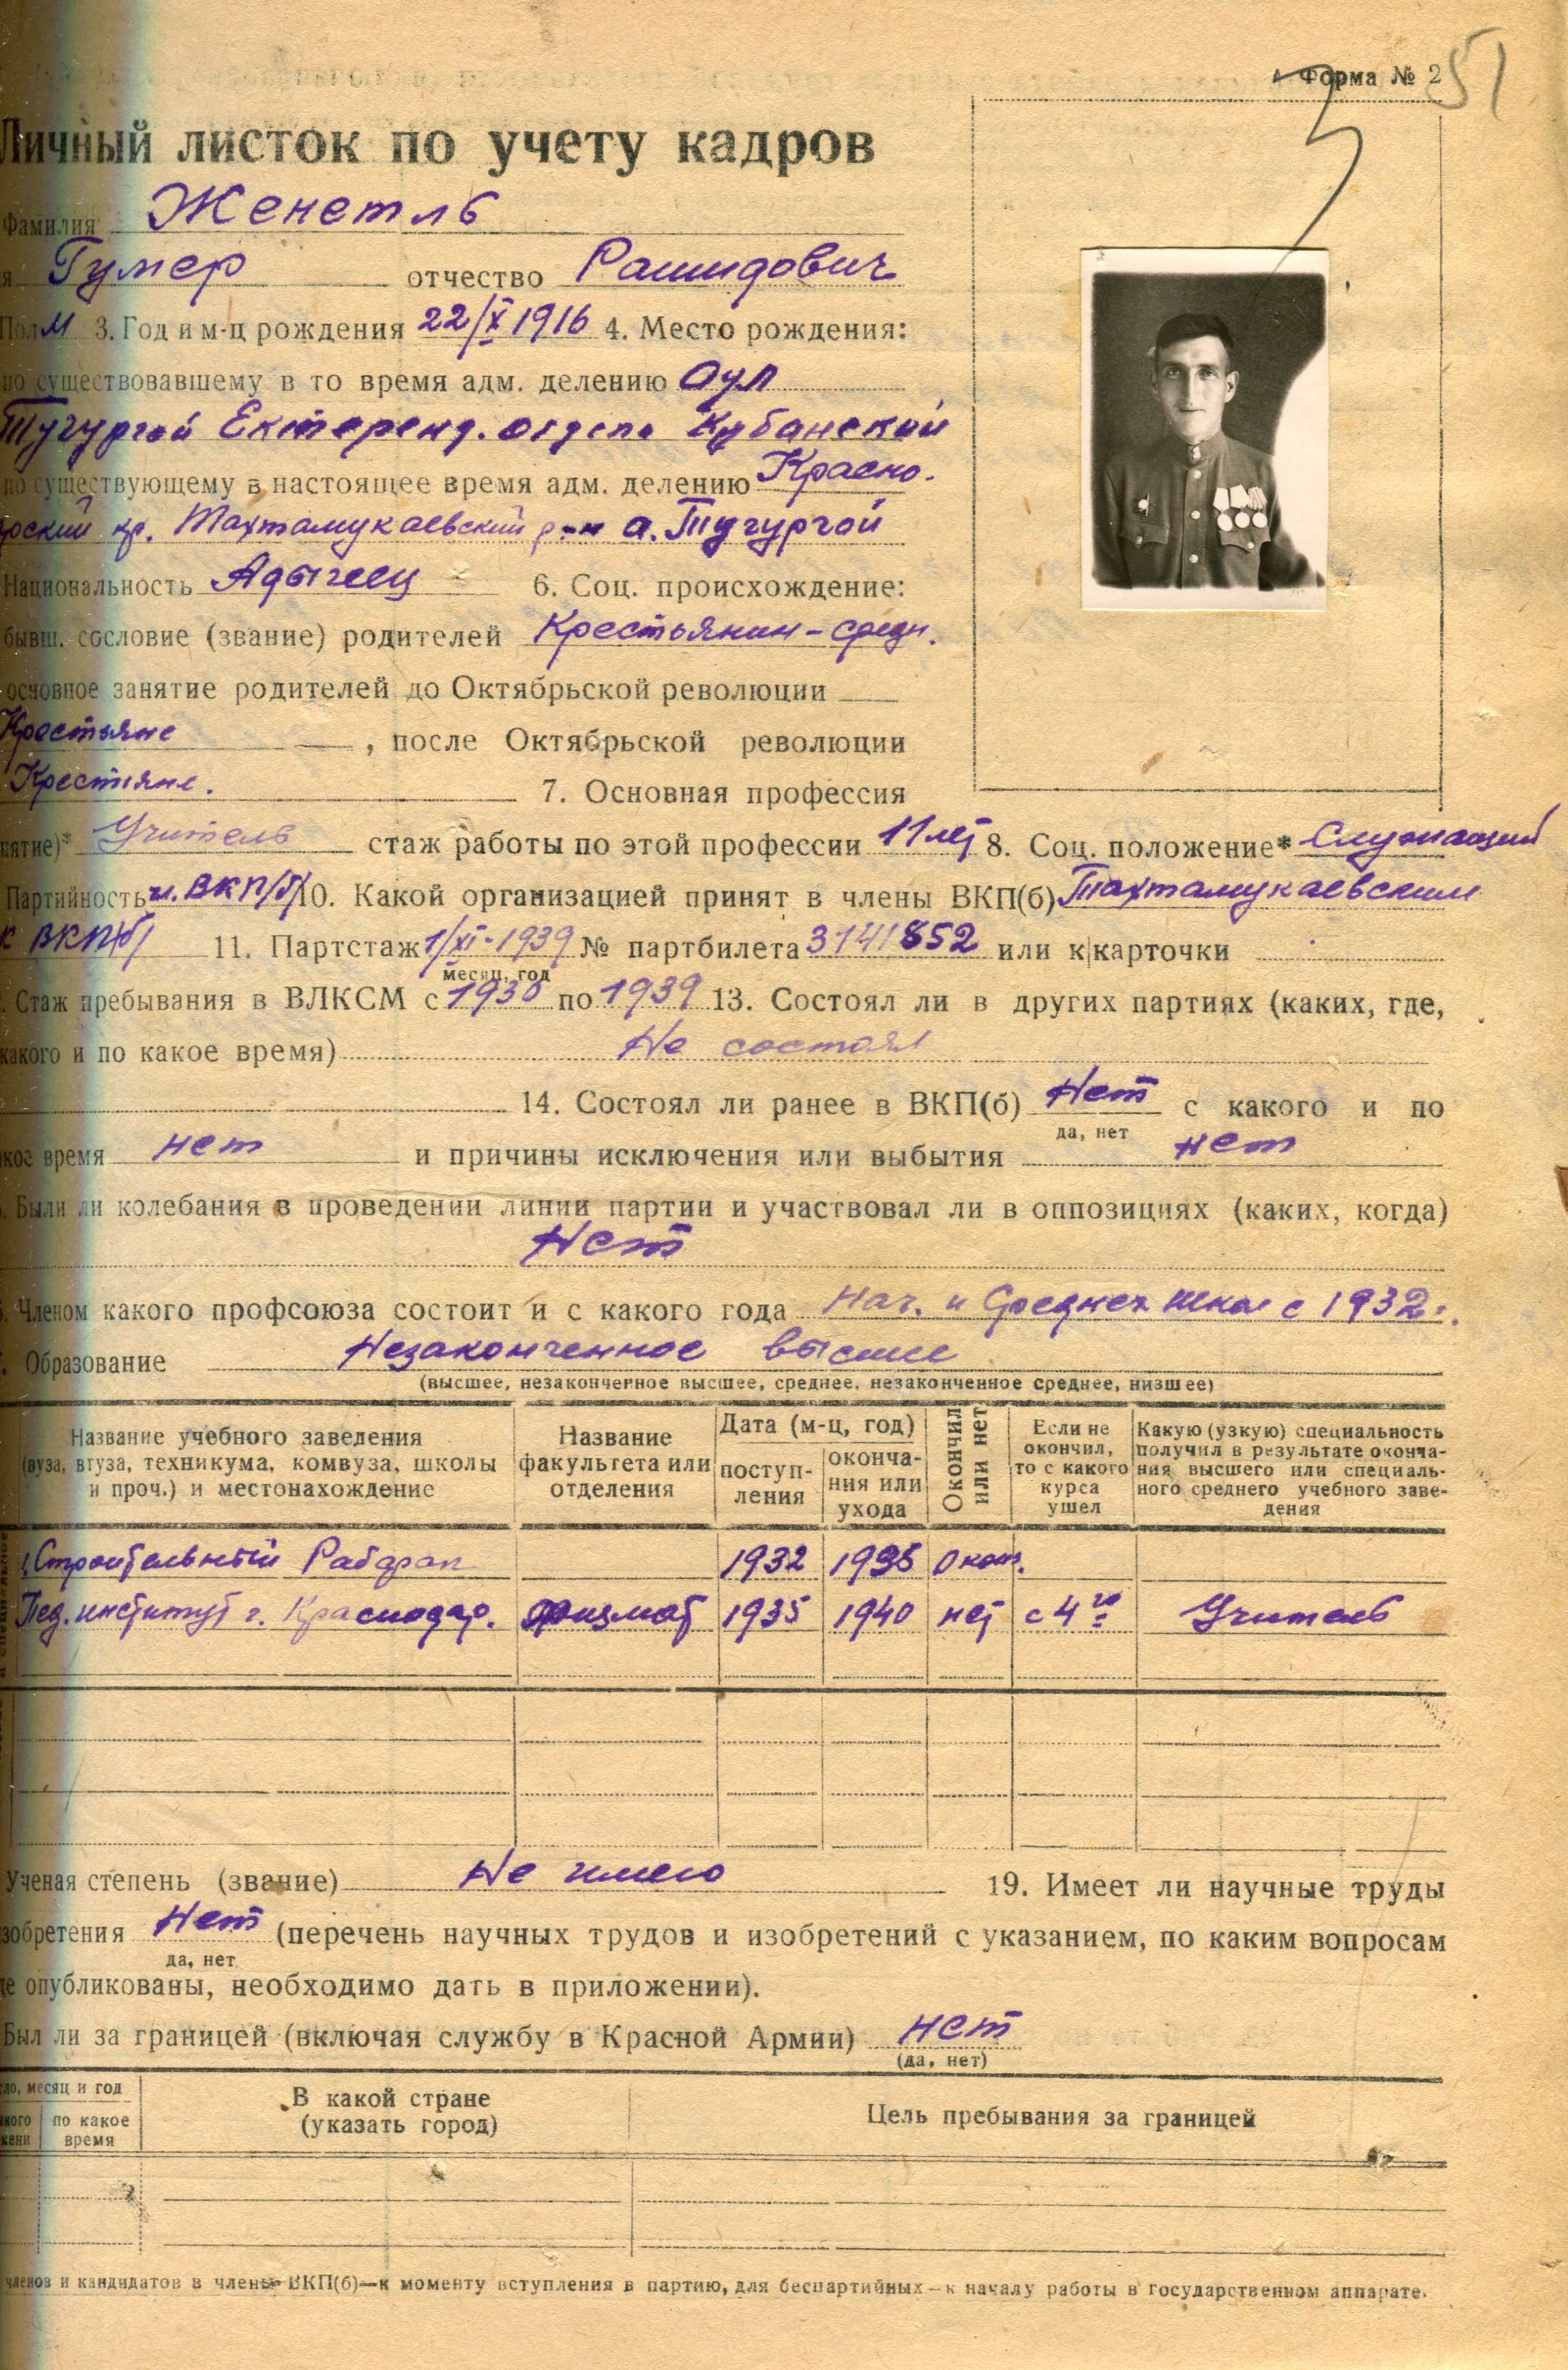 Форма № 2
51
Личный листок по учету кадров
Фамилия Женетль
я Гумер отчество Рашидович
Пол м 3. Год и м-ц рождения 22/X 1916 4. Место рождения:
по существовавшему в то время адм. делению аул
Тугургой Екатеренд. отдела Кубанской
по существующему в настоящее время адм. делению Красно.
рский кр. Тахтамукаевский р-н а. Тугургой
Национальность Адыгеец 6. Соц. происхождение:
бывш. сословие (звание) родителей Крестьянин-средн.
основное занятие родителей до Октябрьской революции
Крестьяне , после Октябрьской революции
Крестіяне. 7. Основная профессия
нятие)* Учитель стаж работы по этой профессии 11 лет 8. Соц. положение* Служащий
Партийность чл. ВКП/б/ 10. Какой организацией принят в члены ВКП(б) Тахтамукаевским
к ВКП/б/ 11. Партстаж 1/XI-1939 № партбилета 3141852 или к|карточки
месяц, год
Стаж пребывания в ВЛКСМ с 1930 по 1939 13. Состоял ли в других партиях (каких, где,
какого и по какое время) Не состоял
14. Состоял ли ранее в ВКП(б) Нет с какого и по
да, нет
кое время нет и причины исключения или выбытия нет
Были ли колебания в проведении линии партии и участвовал ли в оппозициях (каких, когда)
Нет
Членом какого профсоюза состоит и с какого года Нач. и Средней школ с 1932г.
Образование Незаконченное высшее
(высшее, незаконченное высшее, среднее, незаконченное среднее, низшее)
Название учебного заведения (вуза, втуза, техникума, комвуза, школы и проч.) и местонахождение
Название факультета или отделения
Дата (м-ц, год)
поступления
окончания или ухода
Окончил или нет
Если не окончил, то с какого курса ушел
Какую (узкую) специальность получил в результате окончания высшего или специального среднего учебного заведения
1. Строительный Рабфак 1932 1935 Окон.
Пед. институт г. Краснодар. физмат 1935 1940 нет с 4го Учитель
Ученая степень (звание) Не имею 19. Имеет ли научные труды
зобретения Нет (перечень научных трудов и изобретений с указанием, по каким вопросам
да, нет
де опубликованы, необходимо дать в приложении).
Был ли за границей (включая службу в Красной Армии) нет
(да, нет)
ло, месяц и год
кого
жени
по какое время
В какой стране (указать город)
Цель пребывания за границей
членов и кандидатов в члены ВКП(б)—к моменту вступления в партию, для беспартийных—к началу работы в государственном аппарате.